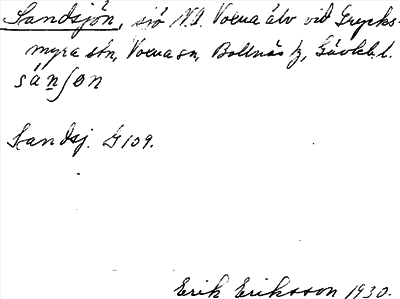 Sandsjön, sjö N.O. Voxna älv vid Grycks-
myra stn, Voxna sn, Bollnäs tg, Gävleb. l.
sánʃøn
Sandsj. G 109.
Erik Eriksson 1930.